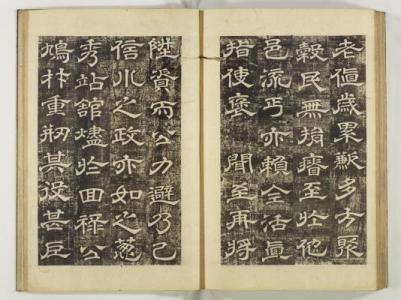 老値歲累歉多方聚
穀民無捐瘠至於他
邑流丐亦賴全活直
指使褒 聞至再將
陞資而公力避乃已
信川之政亦如之蔥
秀站館燼於回祿公
鳩材重刱其役甚巨